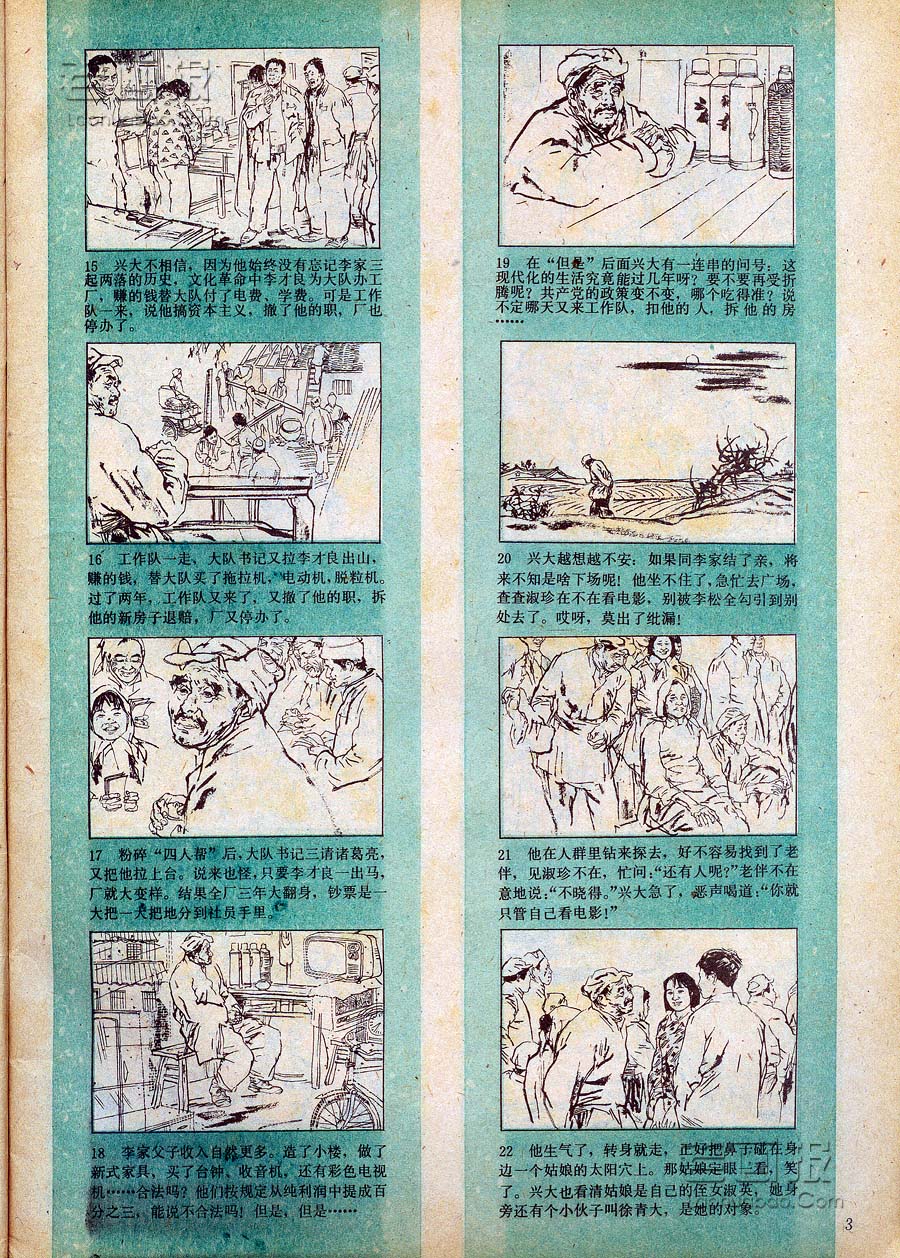 15 兴大不相信，因为他始终没有忘记李家三
起两落的历史，文化革命中李才良为大队办工
厂，赚的钱替大队付了电费、学费。可是工作
队一来，说他搞资本主义，撤了他的职，厂也
停办了。
16 工作队一走、大队书记又拉李才良出山，
赚的钱，替大队买了拖拉机，电动机，脱粒机。
过了两年，工作队又来了，又撤了他的职，拆
他的新房子退赔，厂又停办了。
17 粉碎“四人帮”后，大队书记三请诸葛亮，
又把他拉上台。说来也怪，只要李才良一出马，
厂就大变样。结果全厂三年大翻身，钞票是一
大把一大把地分到社员手里。
18 李家父子收入自然更多。造了小楼，做了
新式家具，买了台钟、收音机，还有彩色电视
机……合法吗？他们按规定从纯利润中提成百
分之三，能说不合法吗！但是，但是……
19 在“但是”后面兴大有一连串的问号：这
现代化的生活究竟能过几年呀？要不要再受折
腾呢？共产党的政策变不变，哪个吃得准？说
不定哪天又来工作队，扣他的人，拆他的房
……
20 兴大越想越不安：如果同李家结了亲，将
来不知是啥下场呢！他坐不住了，急忙去广场，
查查淑珍在不在看电影，别被李松全勾引到别
处去了。哎呀，莫出了纰漏！
21 他在人群里钻来探去，好不容易找到了老
伴，见淑珍不在，忙问：“还有人呢？”老伴不在
意地说：“不晓得。”兴大急了，恶声喝道：“你就
只管自己看电影！”
22 他生气了，转身就走，正好把鼻子碰在身
边一个姑娘的太阳穴上。那姑娘定眼一看，笑
了。兴大也看清姑娘是自己的侄女淑英，她身
旁还有个小伙子叫徐青大，是她的对象。
3